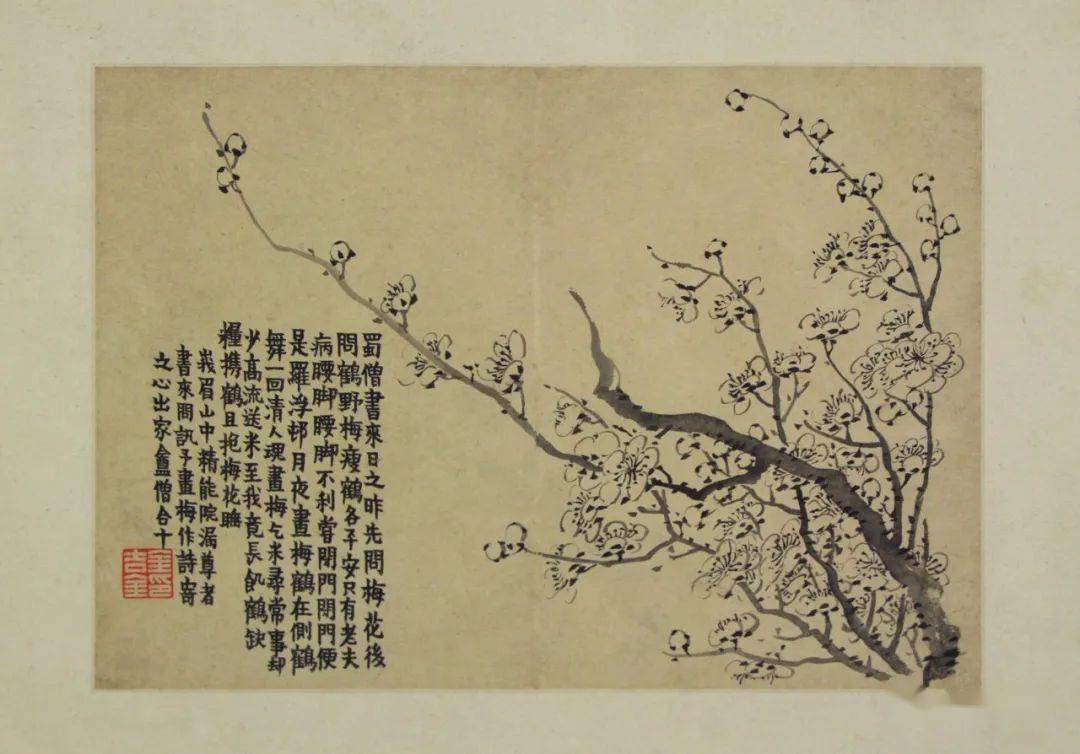 蜀僧書來日之昨先問梅花後
問鶴野梅瘦鶴各平安只有老夫
病腰脚腰脚不利嘗閉門閉門便
是羅浮邨月夜畫梅鶴在側鶴
舞一回清人魂畫梅乞米尋常事却
少高流送米至我竟長飢鶴缺
糧携鶴且抱梅花睡
峩眉山中精能院漏尊者
書來問訊予畫梅作詩寄
之心出家盦僧合十
金印
吉金